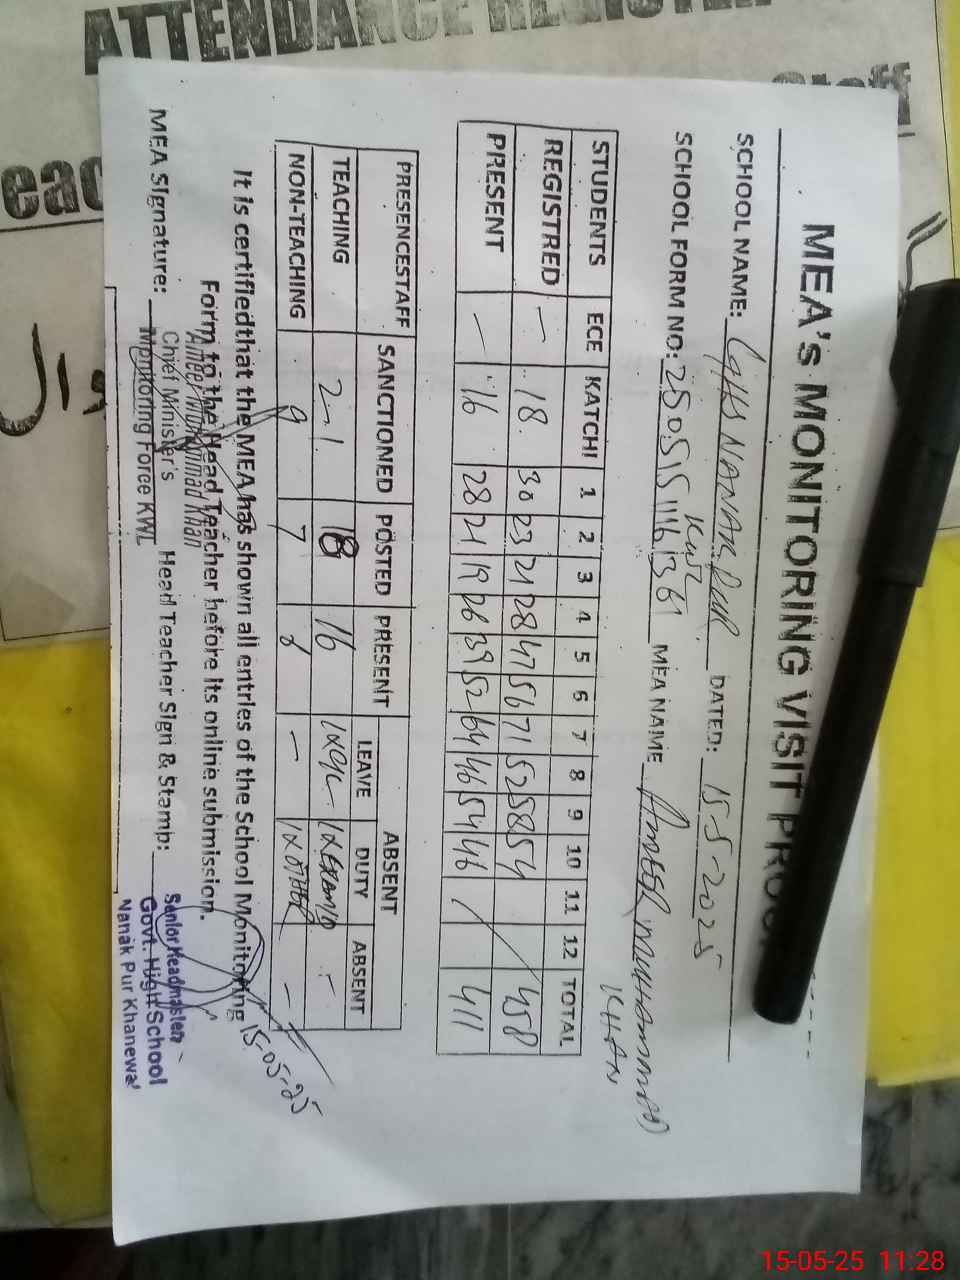 ATTENDANCE REGISTER
Staff
MEA's MONITORING VISIT PROO
SCHOOL NAME: GHS NANAK PUR KWL DATED: 15-5-2025
SCHOOL FORM NO: MEA NAME AMEER MUHAMMAD KHAN
STUDENTS ECE KATCHI 1 2 3 4 5 6 7 8 9 10 11 12 TOTAL
REGISTRED — 18 30 23 21 28 47 56 71 52 58 54 / 458
PRESENT — 16 28 21 19 26 39 52 64 46 54 46 / 411
PRESENCESTAFF SANCTIONED POSTED PRESENT ABSENT
LEAVE DUTY ABSENT
TEACHING 21 18 16 1x 1x -
NON-TEACHING 9 7 6 — 1xOTHER —
It is certifiedthat the MEA has shown all entries of the School Monitoring
Form to the Head Teacher before its online submission.
15-05-25
MEA Signature: Head Teacher Sign & Stamp:
Ameer Muhammad Khan
Chief Minister's
Monitoring Force KWL
Senior Headmaster
Govt. High School
Nanak Pur Khanewal
15-05-25 11:28